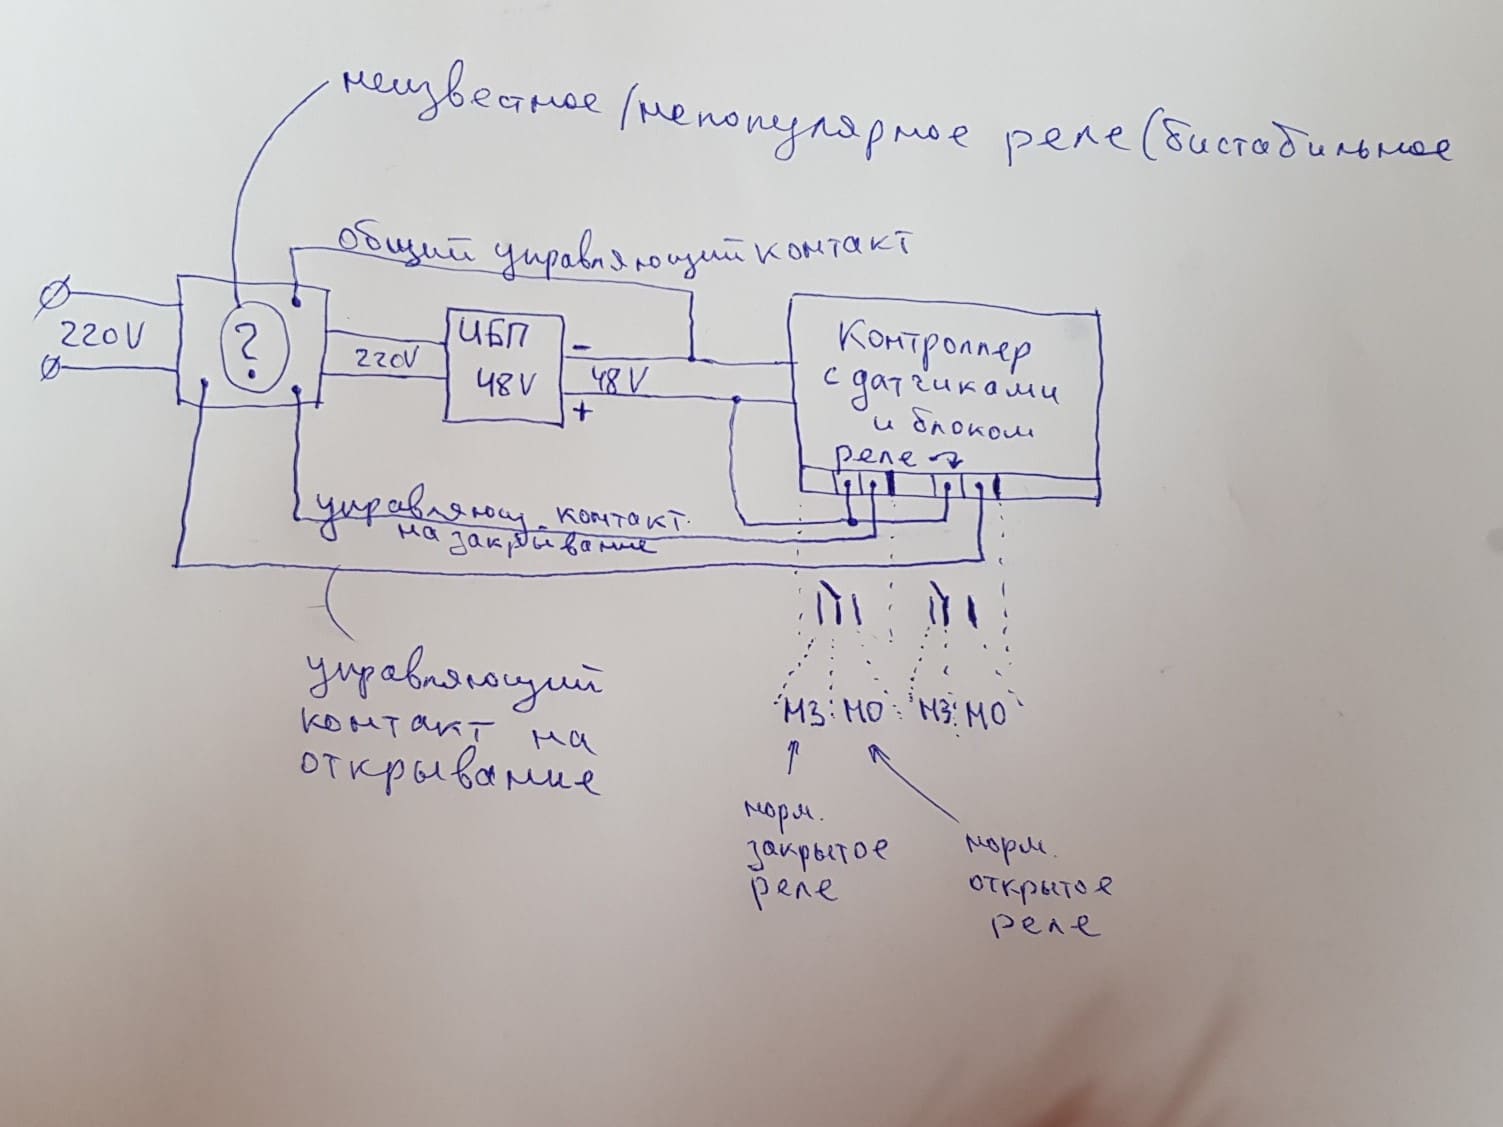 неизвестное/непопулярное реле (бистабильное
общий управляющий контакт
220V
?
220V
ИБП
48V
-
48V
+
Контроллер
с датчиками
и блоком
реле
управляющ. контакт
на закрывание
управляющий
контакт на
открывание
НЗ НО НЗ НО
норм.
закрытое
реле
норм.
открытое
реле